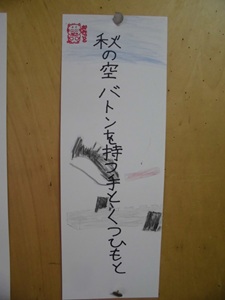 秋の空 バトンを持つ手とくつひもと